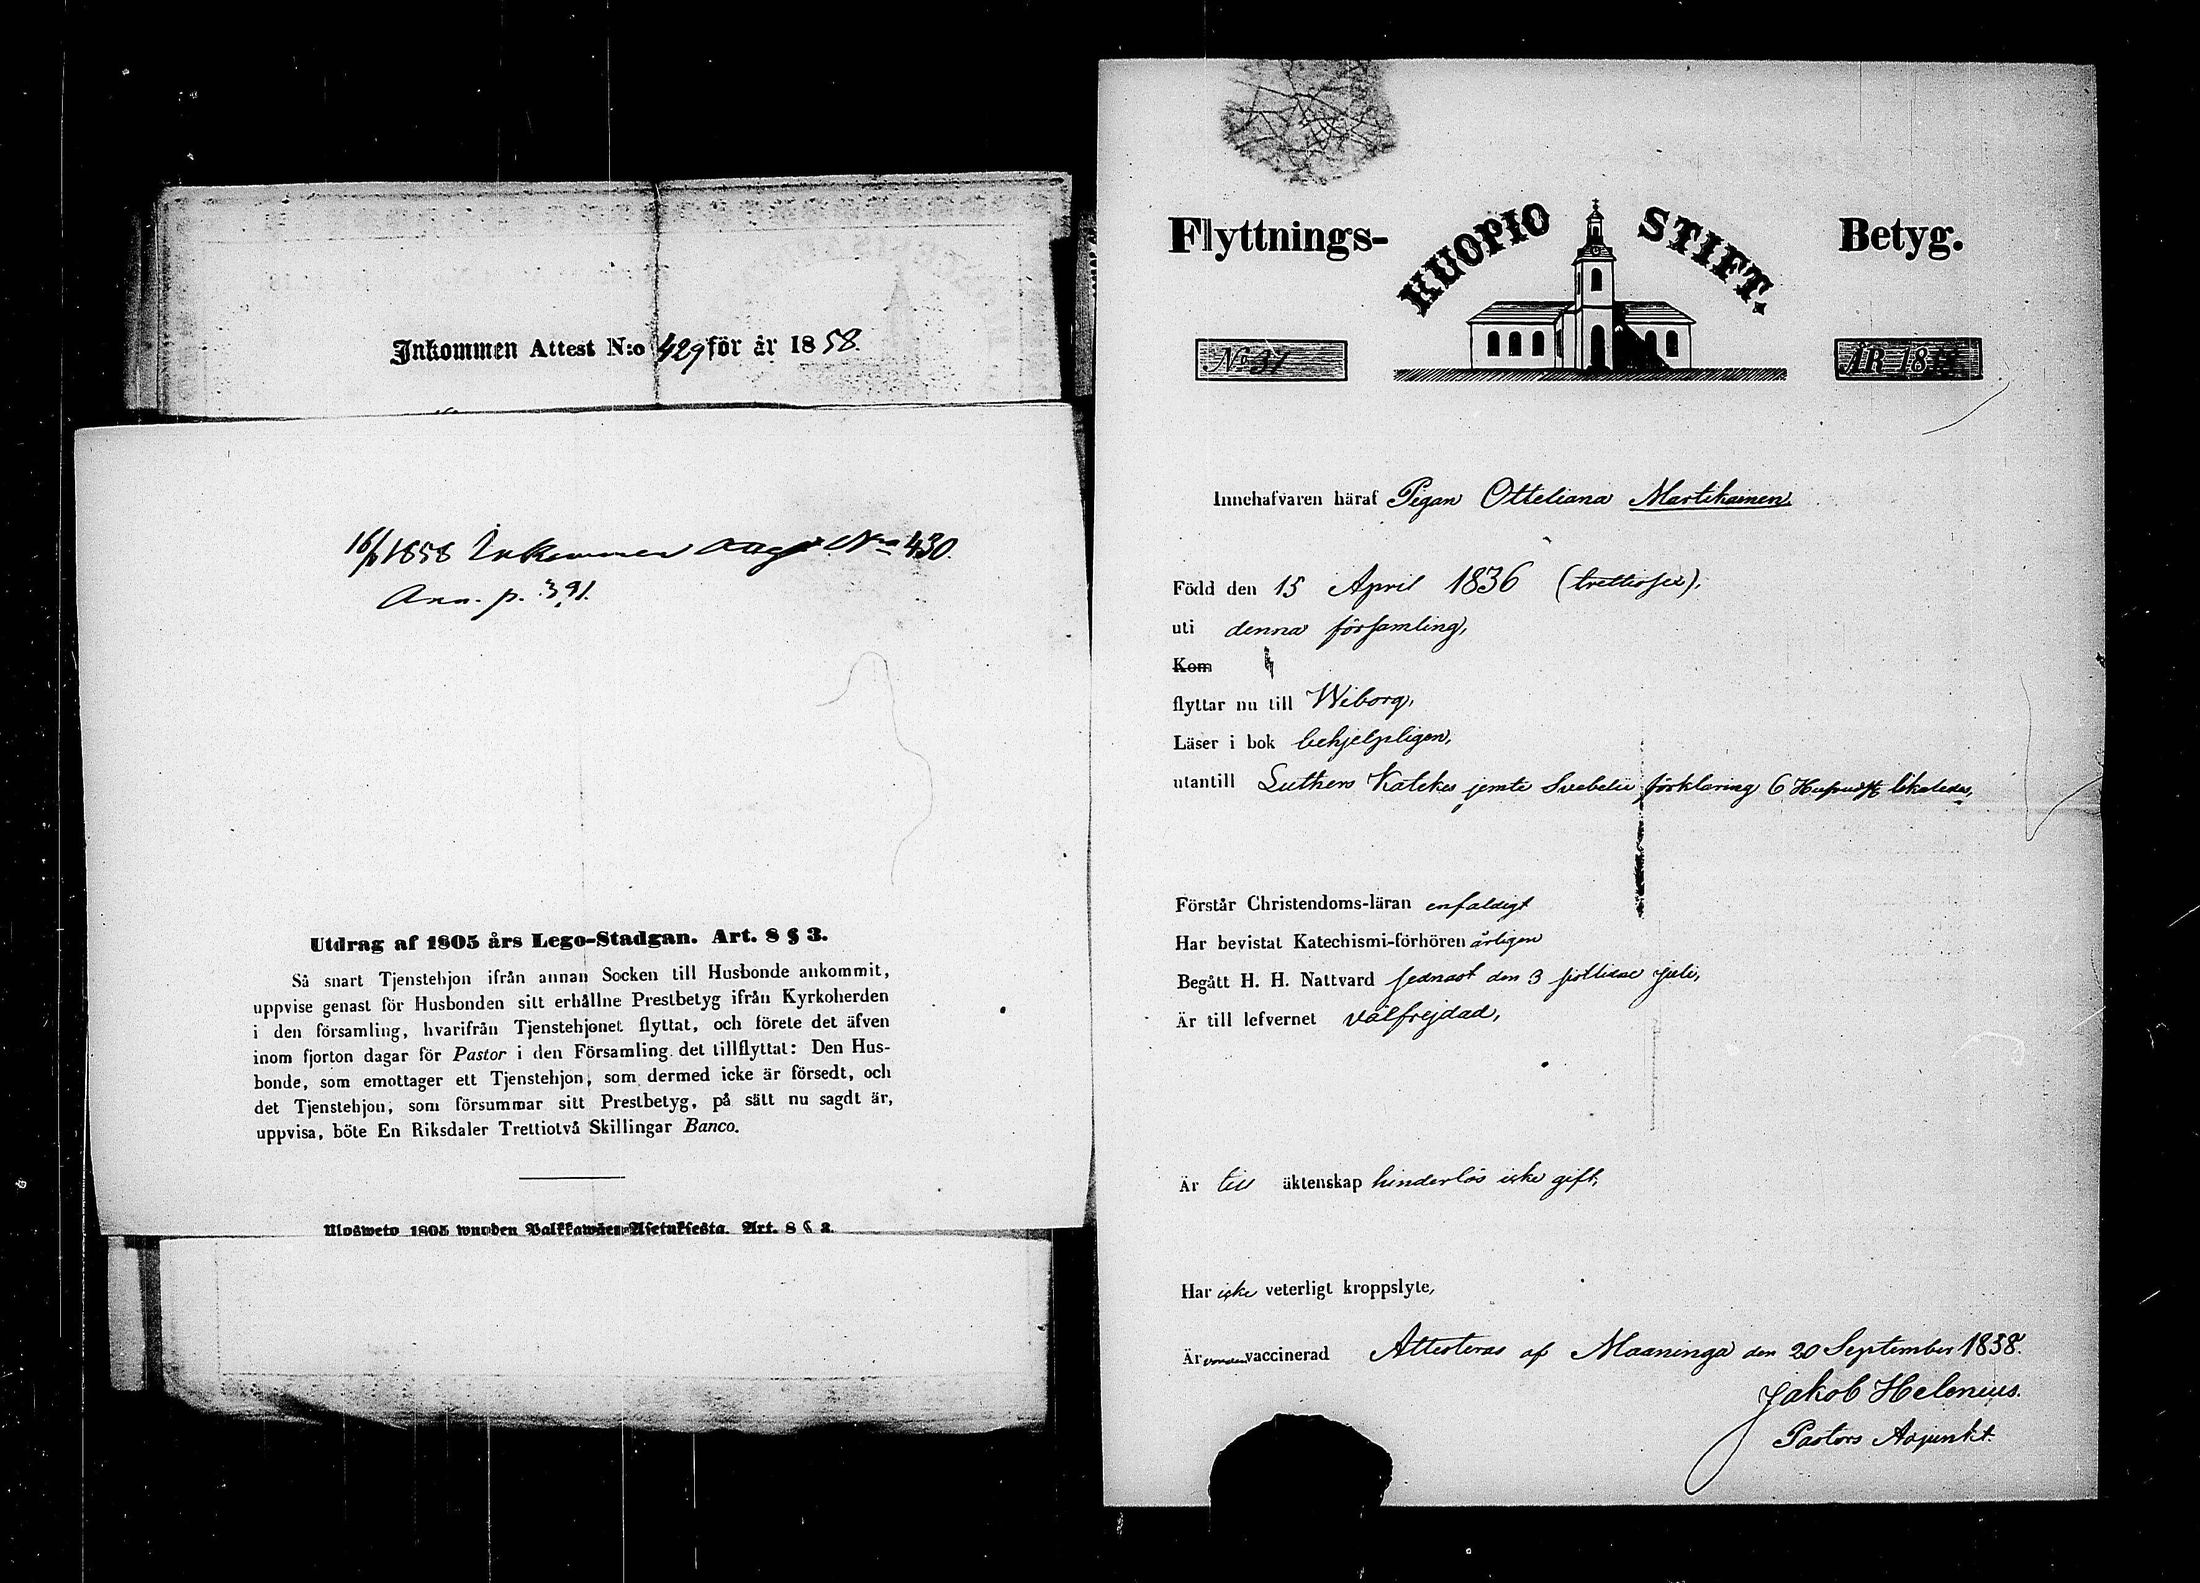 Inkommen Attest N:o 429 för år 1858.
16/ 1858 Inkommen No 430.
Ann. p. 391.
Utdrag af 1805 års Lego-Stadgan. Art. 8 § 3.
Så snart Tjenstehjon ifrån annan Socken till Husbonde ankommit,
uppvise genast för Husbonden sitt erhållne Prestbetyg ifrån Kyrkoherden
i den församling, hvarifrån Tjenstehjonet flyttat, och förete det äfven
inom fjorton dagar för Pastor i den Församling det tillflyttat: Den Hus-
bonde, som emottager ett Tjenstehjon, som dermed icke är försedt, och
det Tjenstehjon, som försummar sitt Prestbetyg, på sätt nu sagdt är,
uppvisa, böte En Riksdaler Trettiotvå Skillingar Banco.
Ulosweto 1805 wuoden Palkkawäen-Asetuksesta. Art. 8 § 3.
Flyttnings- KUOPIO STIFT. Betyg.
No 31 ÅR 18
Innehafvaren häraf Pigan Otteliana Martikainen
Född den 15 April 1836 (trettiosex),
uti denna församling,
Kom
flyttar nu till Wiborg,
Läser i bok behjelpligen,
utantill Luthers Katekes jemte Svebelii förklaring 6 Hufvudst likaledes,
Förstår Christendoms-läran enfaldigt
Har bevistat Katechismi-förhören årligen
Begått H. H. Nattvard sednast den 3 sistlidne Juli,
Är till lefvernet välfrejdad,
Är till äktenskap hinderlös icke gift,
Har icke veterligt kroppslyte,
Är vorden vaccinerad Attesteras af Maaninga den 20 September 1858.
Jakob Helenius.
Pastors Adjunkt.